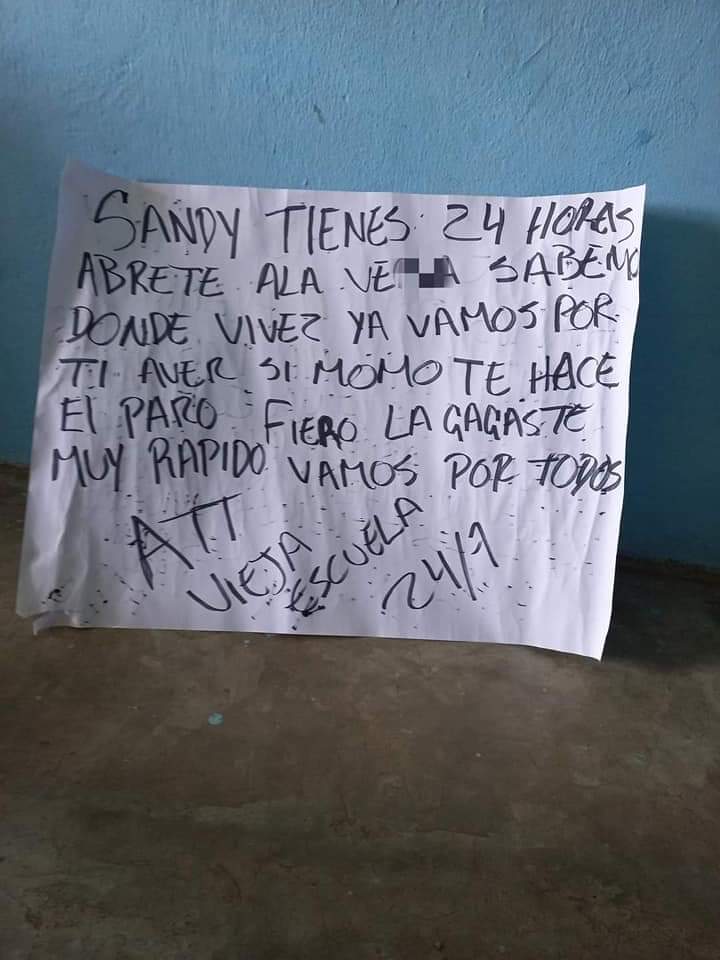 SANDY TIENES 24 HORAS
ABRETE ALA VE A SABEMO
DONDE VIVEZ YA VAMOS POR
TI AVER SI MOMO TE HACE
El PARO FIERO LA GAGASTE
MUY RAPIDO VAMOS POR TODOS
ATT
VIEJA ESCUELA
24/7